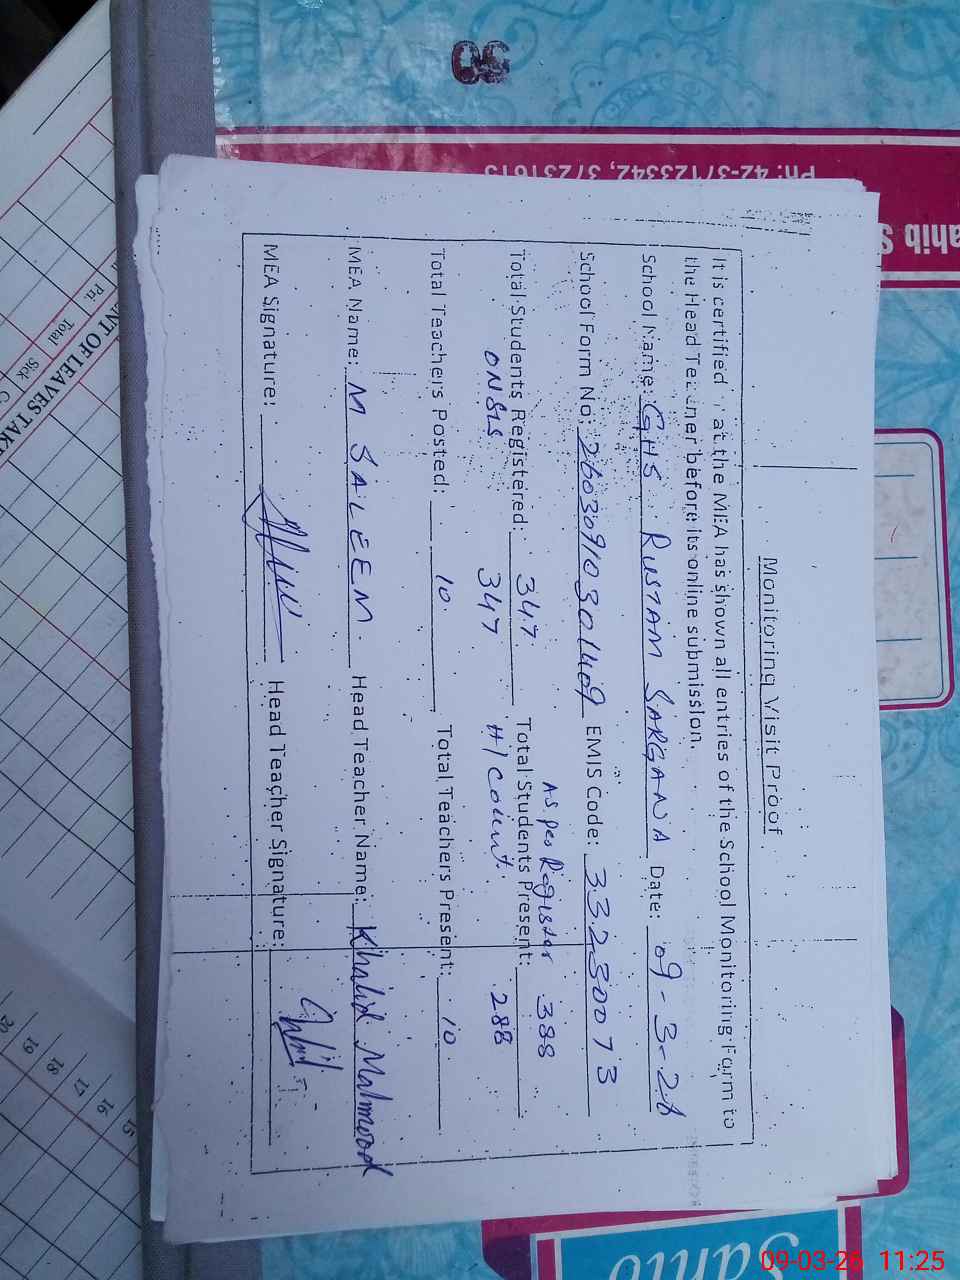 Monitoring Visit Proof
It is certified that the MEA has shown all entries of the School Monitoring Form to
the Head Teacher before its online submission.
School Name: GHS RUSTAM SARGANA Date: 09-3-26
School Form No: 26030910301409 EMIS Code: 33230073
As per Register 388
Total Students Registered: 347 Total Students Present:
ON SIS 347 H/Count. 288
Total Teachers Posted: 10 Total Teachers Present: 10
MEA Name: M SALEEM Head Teacher Name: Khalid Mahmood
MEA Signature: Head Teacher Signature:
Ph: 42-37123342, 37231613
ahib S
OF LEAVES TAKE
Pri.
Total
Sick
15
16
17
18
19
20
09-03-26 11:25